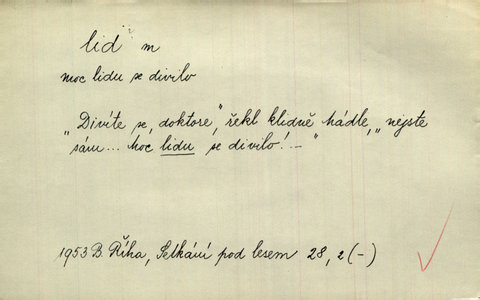 lid m
moc lidu se divilo
„Divíte se, doktore", řekl klidně hádle, „nejste
sám... moc lidu se divilo! – "
1953 B. Říha, Setkání pod lesem 28, 2 (–)